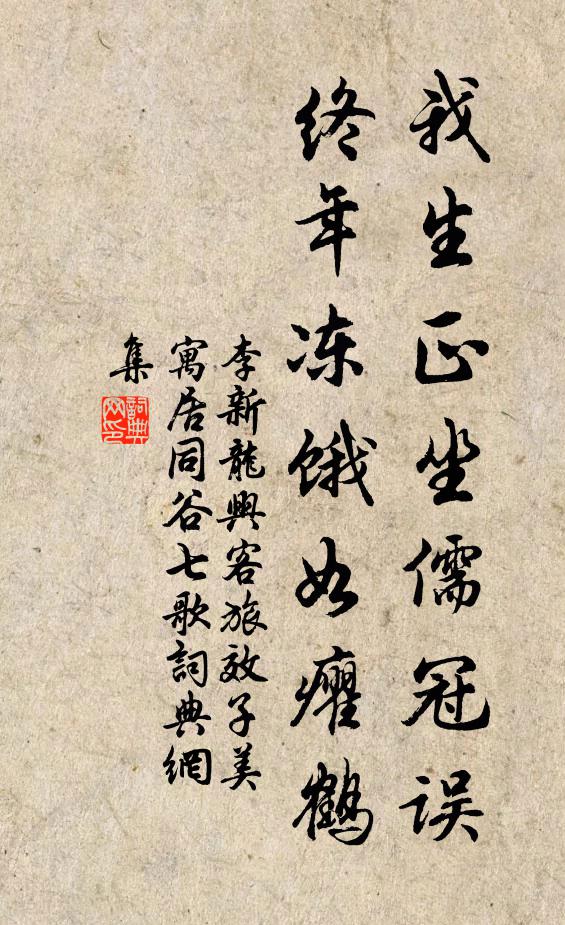 我生正坐儒冠误
终年冻饿如癯鹤
李新龍興客旅效子美
寓居同谷七歌詞典網
集
詞典
网印